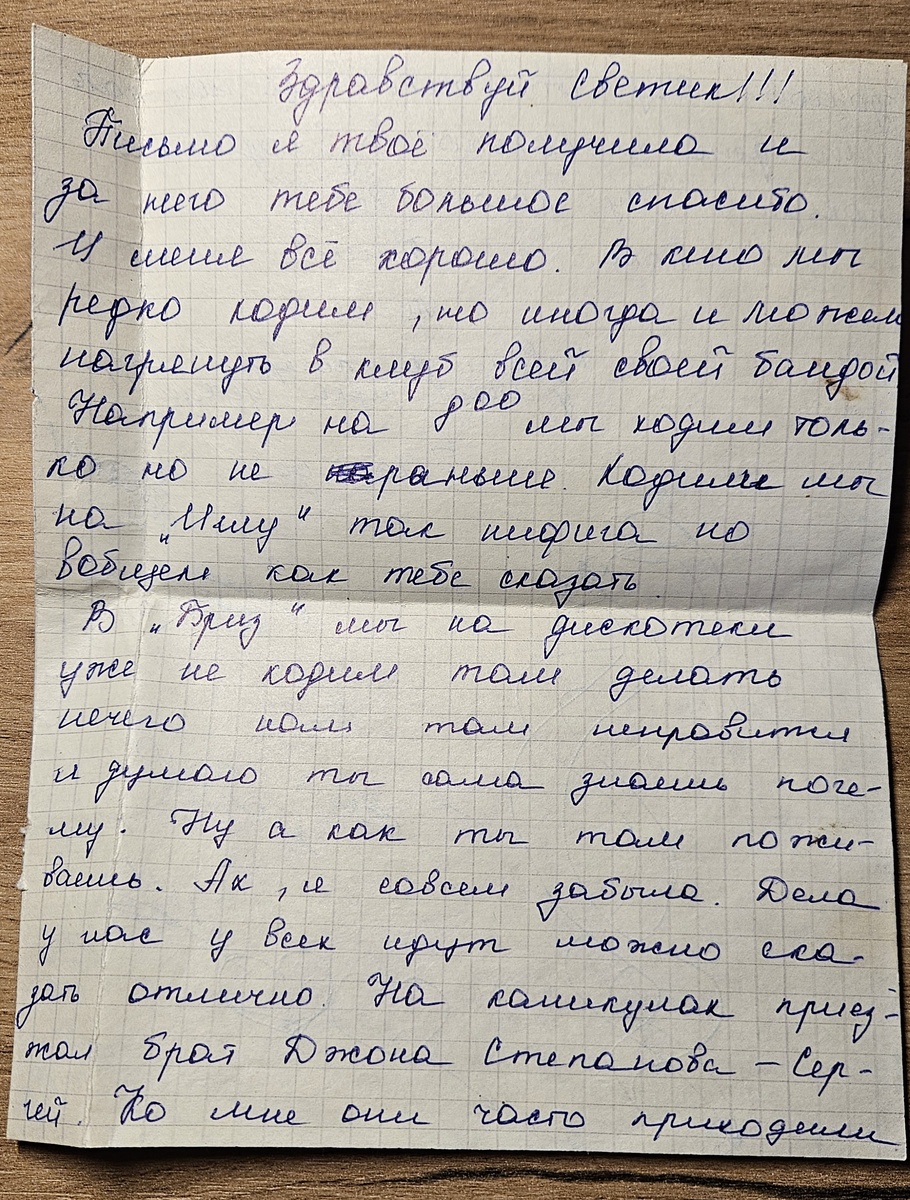 Здравствуй Светик!!!
Письмо я твоё получила и
за него тебе большое спасибо.
У меня всё хорошо. В кино мы
редко ходим, но иногда и можем
нагрянуть в клуб всей своей бандой
Например на 8 00 мы ходим толь-
ко но не раньше. Ходили мы
на „Иглу" так нифига но
вобщем как тебе сказать
В „Бриз" мы на дискотеки
уже не ходим там делать
нечего нам там ненравится
и думаю ты сама знаешь поче-
му. Ну а как ты там пожи-
ваешь. Ах, я совсем забыла. Дела
у нас у всех идут можно ска-
зать отлично. На каникулах приез-
жал брат Джона Степанова – Сер-
гей. Ко мне они часто приходили